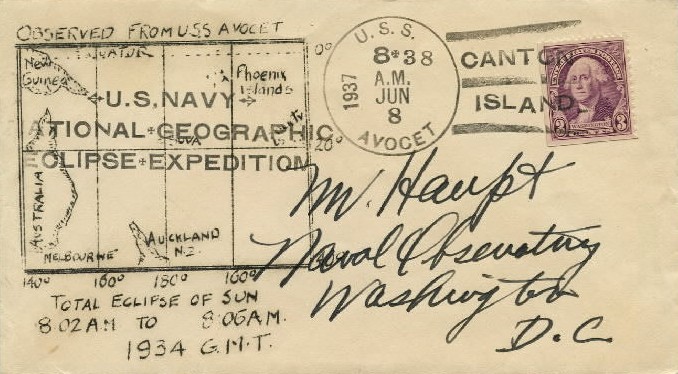 OBSERVED FROM U.S.S. AVOCET
EQUATOR
0°
New Guinea
Phoenix Islands
U.S. NAVY
ATIONAL GEOGRAPHIC
20°
ECLIPSE EXPEDITION
AUSTRALIA
MELBOURNE
AUCKLAND
N.Z.
140° 160° 180° 160°
TOTAL ECLIPSE OF SUN
8 02 A.M. TO 8:06 A.M.
1934 G.M.T.
U.S.S.
8 38
A.M.
1937
JUN
8
AVOCET
CANTON
ISLAND
3 3
Mr. Haupt
Naval Observatory
Washington
D.C.